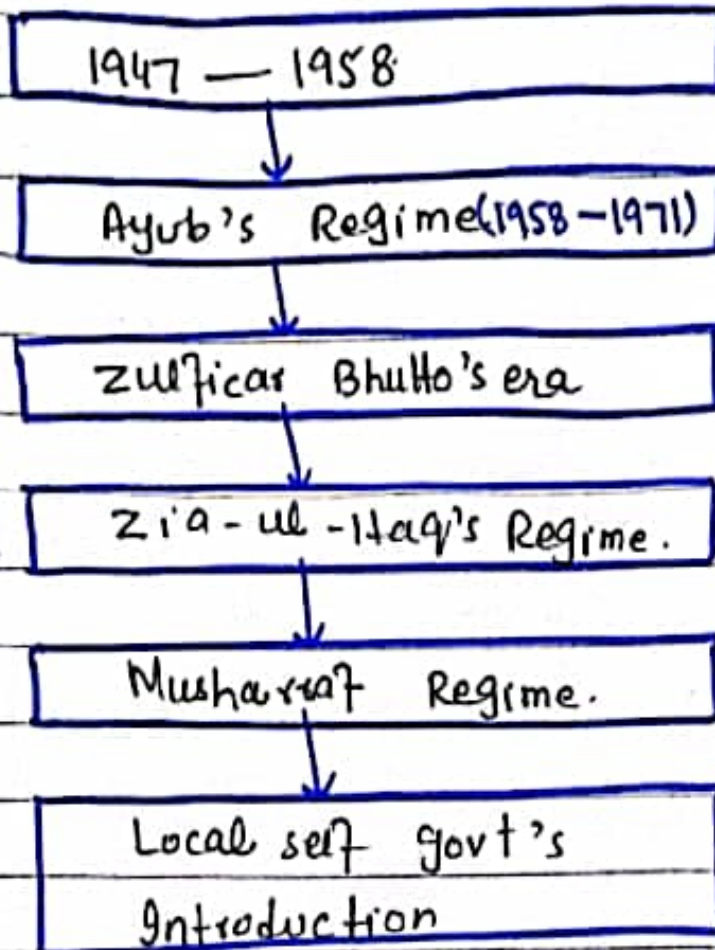 1947 — 1958
Ayub's Regime(1958-1971)
Zulficar Bhutto's era
Zia-ul-Haq's Regime.
Musharraf Regime.
Local self govt's
Introduction